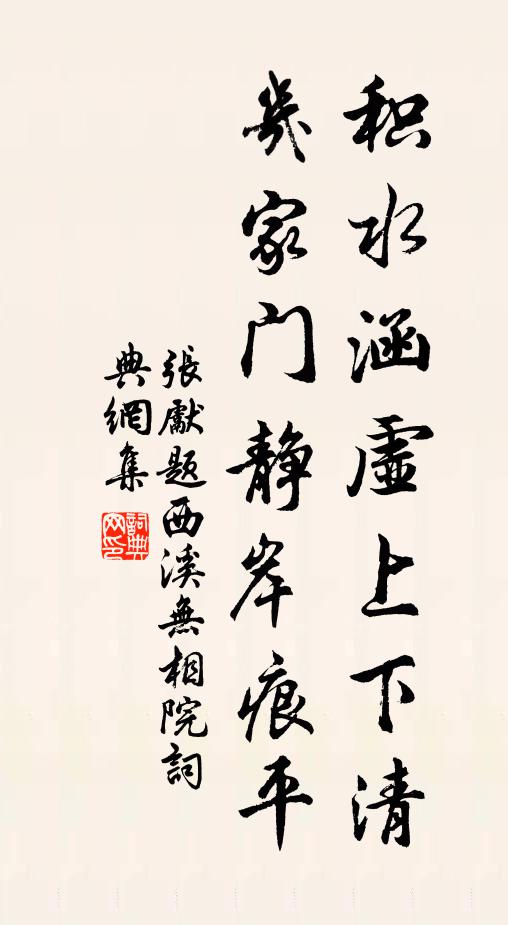 积水涵虚上下清
几家门静岸痕平
張獻題西溪無相院詞
典網集
詞典網印